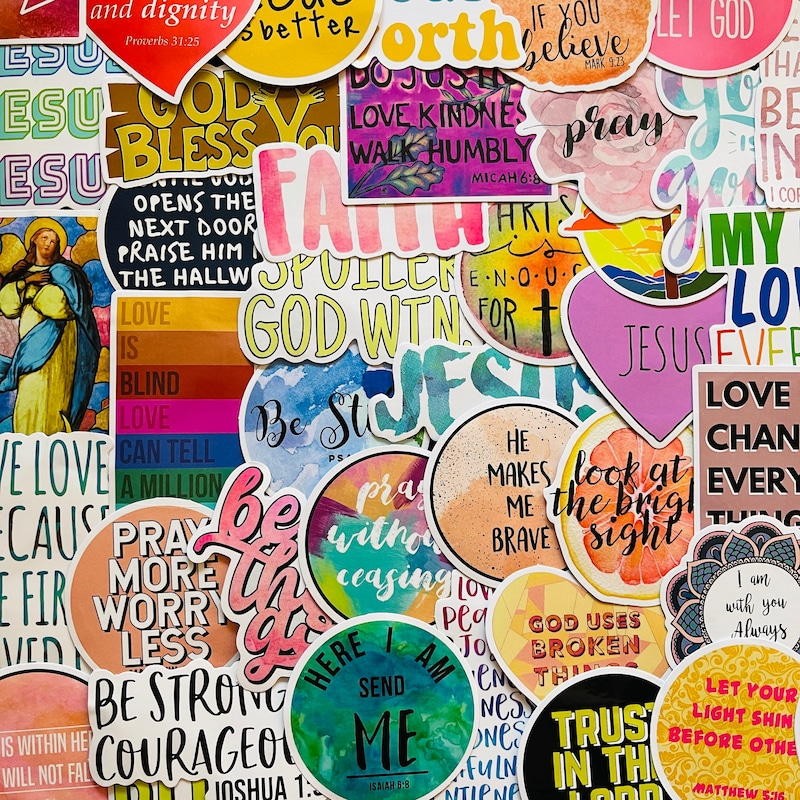 and dignity
Proverbs 31:25
is better
orth
IF YOU
believe
MARK 9:23
LET GOD
ESUS
ESUS
ESUS
GOD
BLESS YOU
DO JUSTLY
LOVE KINDNES
WALK HUMBLY
MICAH 6:8
pray
God
is
good
BE
IN
I CO
OPENS THE
NEXT DOOR
PRAISE HIM I
THE HALLW
FAITH
SPOILER
GOD WIN.
IS
ENOUG
FOR
MY
LO
EVER
JESUS
LOVE
IS
BLIND
LOVE
CAN TELL
A MILLION
Be St
PS
JESUS
LOVE
CHAN
EVERY
THING
HE
MAKES
ME
BRAVE
look at
the brigh
sight
pray
without
ceasing
WE LOVE
ECAUS
E FIR
VED
be
th
gs
PRAY
MORE
WORRY
LESS
I am
with you
Always
GOD USES
BROKEN
THINGS
LOVE
PEA
JO
HERE I AM
SEND
ME
ISAIAH 6:8
BE STRONG
COURAGEOU
JOSHUA 1:
IS WITHIN HE
WILL NOT FAL
TRUST
IN THE
LORD
LET YOUR
LIGHT SHIN
BEFORE OTHE
MATTHEW 5:16